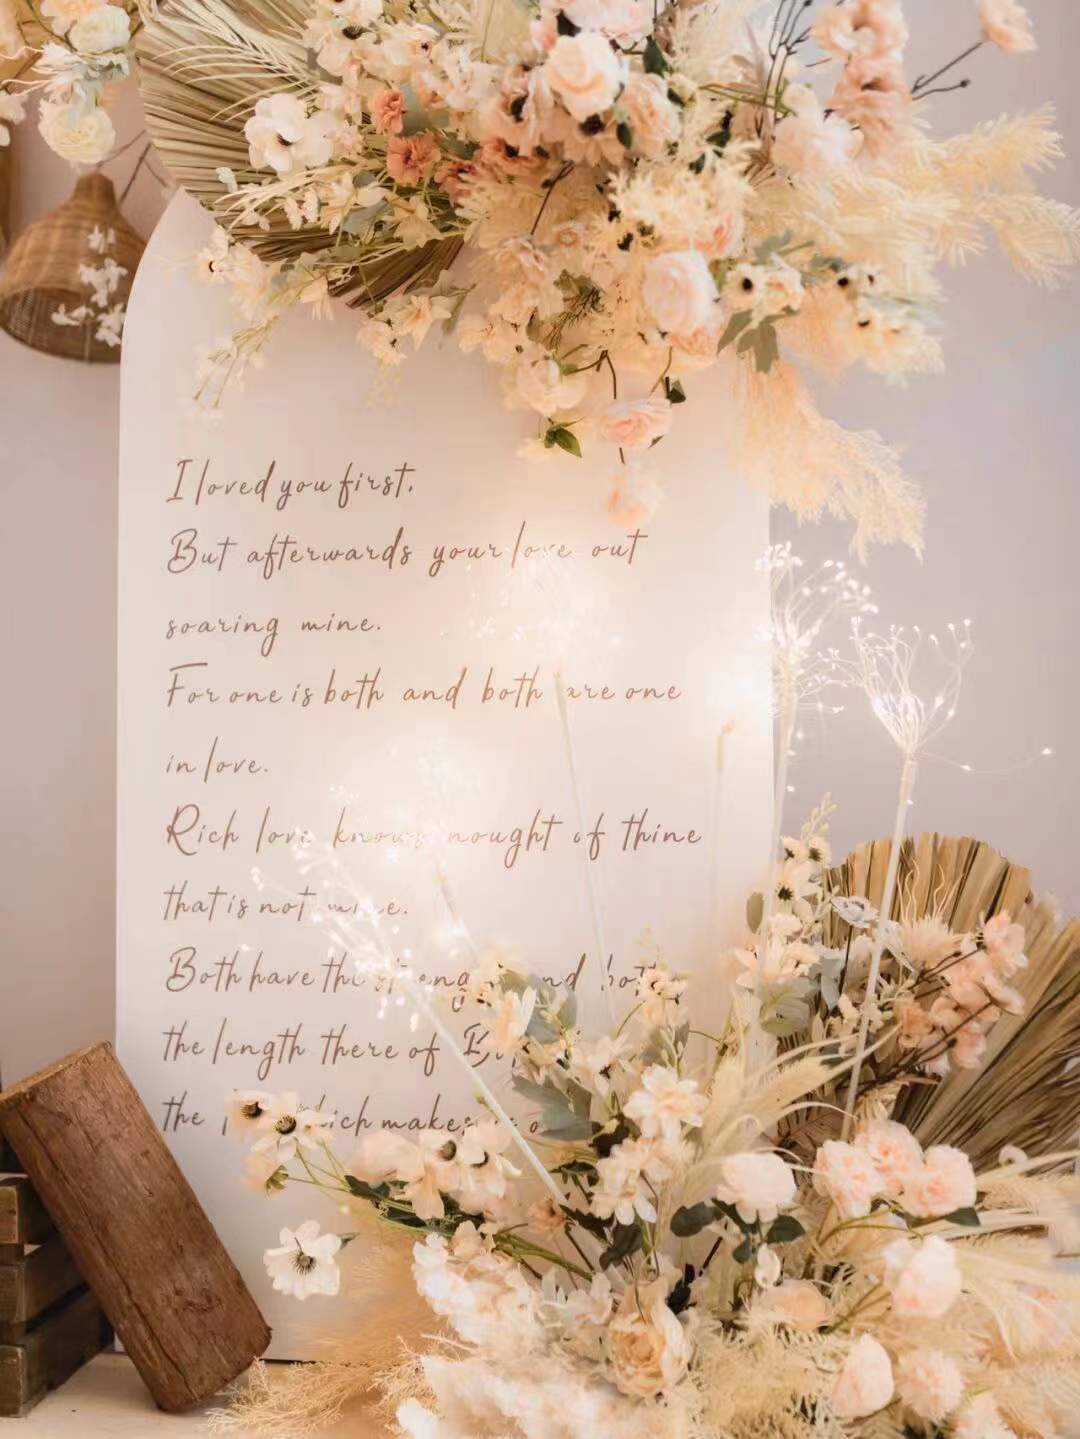 I loved you first.
But afterwards your love out
soaring mine.
For one is both and both are one
in love.
Rich love knows nought of thine
that is not mine.
Both have the strength and both
the length there of
the which makes